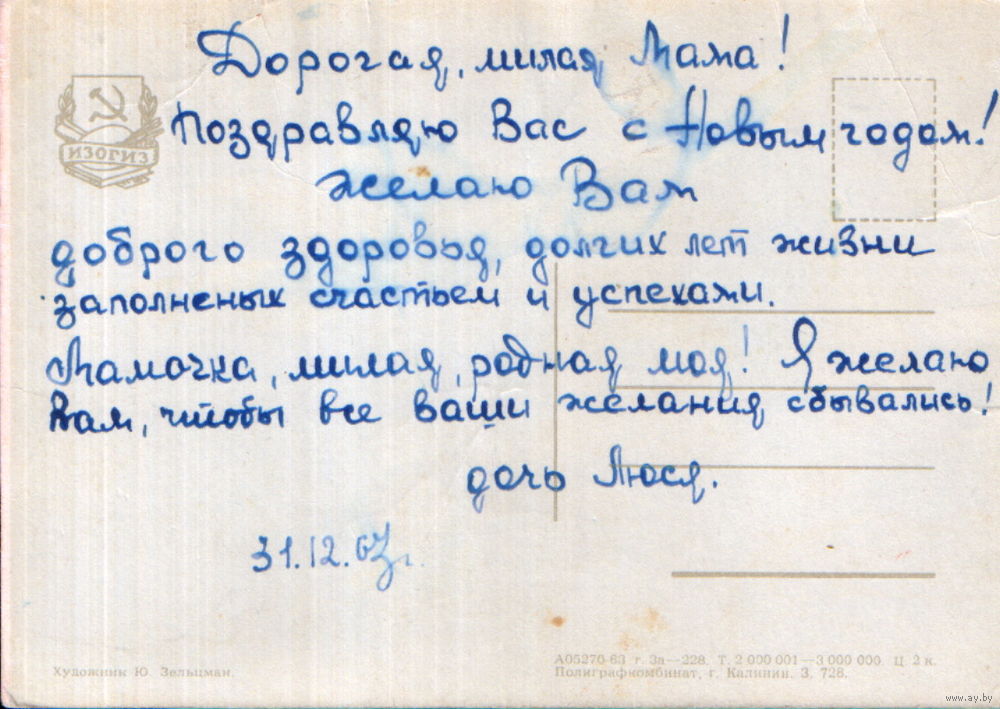 Дорогая, милая Мама!
Поздравляю Вас с Новым годом!
Желаю Вам
доброго здоровья, долгих лет жизни
заполненых счастьем и успехами.
Мамочка, милая, родная моя! Я желаю
Вам, чтобы все ваши желания сбывались!
дочь Люся.
31.12.67г.
ИЗОГИЗ
Художник Ю. Зельцман.
А05270-63 г. За—228. Т. 2 000 001—3 000 000. Ц. 2 к.
Полиграфкомбинат, г. Калинин. З. 728.
www.ay.by